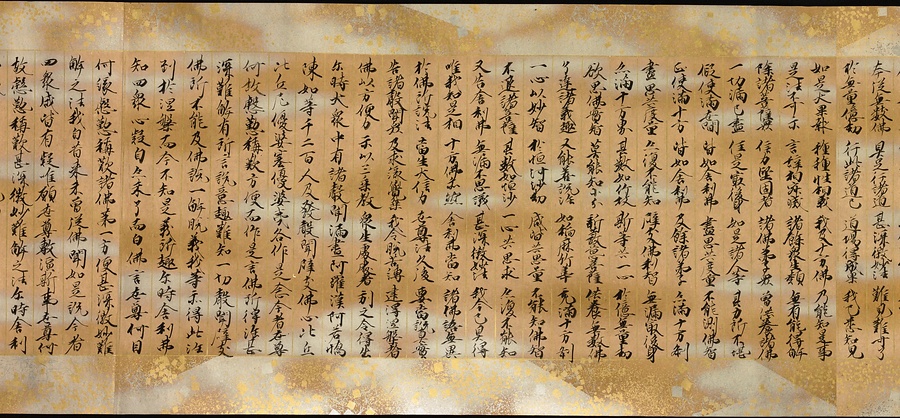 本從無數佛 具足行諸道 甚深微妙法 難見難可了
於無量億劫 行此諸道已 道場得成果 我已悉知見
如是大果報 種種性相義 我及十方佛 乃能知是事
是法不可示 言辭相寂滅 諸餘衆生類 無有能得解
除諸菩薩衆 信力堅固者 諸佛弟子衆 曾供養諸佛
一切漏已盡 住是最後身 如是諸人等 其力所不堪
假使滿世間 皆如舍利弗 盡思共度量 不能測佛智
正使滿十方 皆如舍利弗 及餘諸弟子 亦滿十方刹
盡思共度量 亦復不能知 辟支佛利智 無漏最後身
亦滿十方界 其數如竹林 斯等共一心 於億無量劫
欲思佛實智 莫能知少分 新發意菩薩 供養無數佛
了達諸義趣 又能善說法 如稻麻竹葦 充滿十方刹
一心以妙智 於恒河沙劫 咸皆共思量 不能知佛智
不退諸菩薩 其數如恒沙 一心共思求 亦復不能知
又告舍利弗 無漏不思議 甚深微妙法 我今已具得
唯我知是相 十方佛亦然 舍利弗當知 諸佛語無異
於佛所說法 當生大信力 世尊法久後 要當說真實
告諸聲聞衆 及求緣覺乘 我令脫苦縛 逮得涅槃者
佛以方便力 示以三乘教 衆生處處著 引之令得出
爾時大衆中有諸聲聞漏盡阿羅漢阿若憍
陳如等千二百人及發聲聞辟支佛心比丘
比丘尼優婆塞優婆夷各作是念今者世尊
何故慇懃稱歎方便而作是言佛所得法甚
深難解有所言說意趣難知一切聲聞辟支
佛所不能及佛說一解脫義我等亦得此法
到於涅槃而今不知是義所趣爾時舍利弗
知四衆心疑自亦未了而白佛言世尊何因
何緣慇懃稱歎諸佛第一方便甚深微妙難
解之法我自昔來未曾從佛聞如是說今者
四衆咸皆有疑唯願世尊敷演斯事世尊何
故慇懃稱歎甚深微妙難解之法爾時舍利